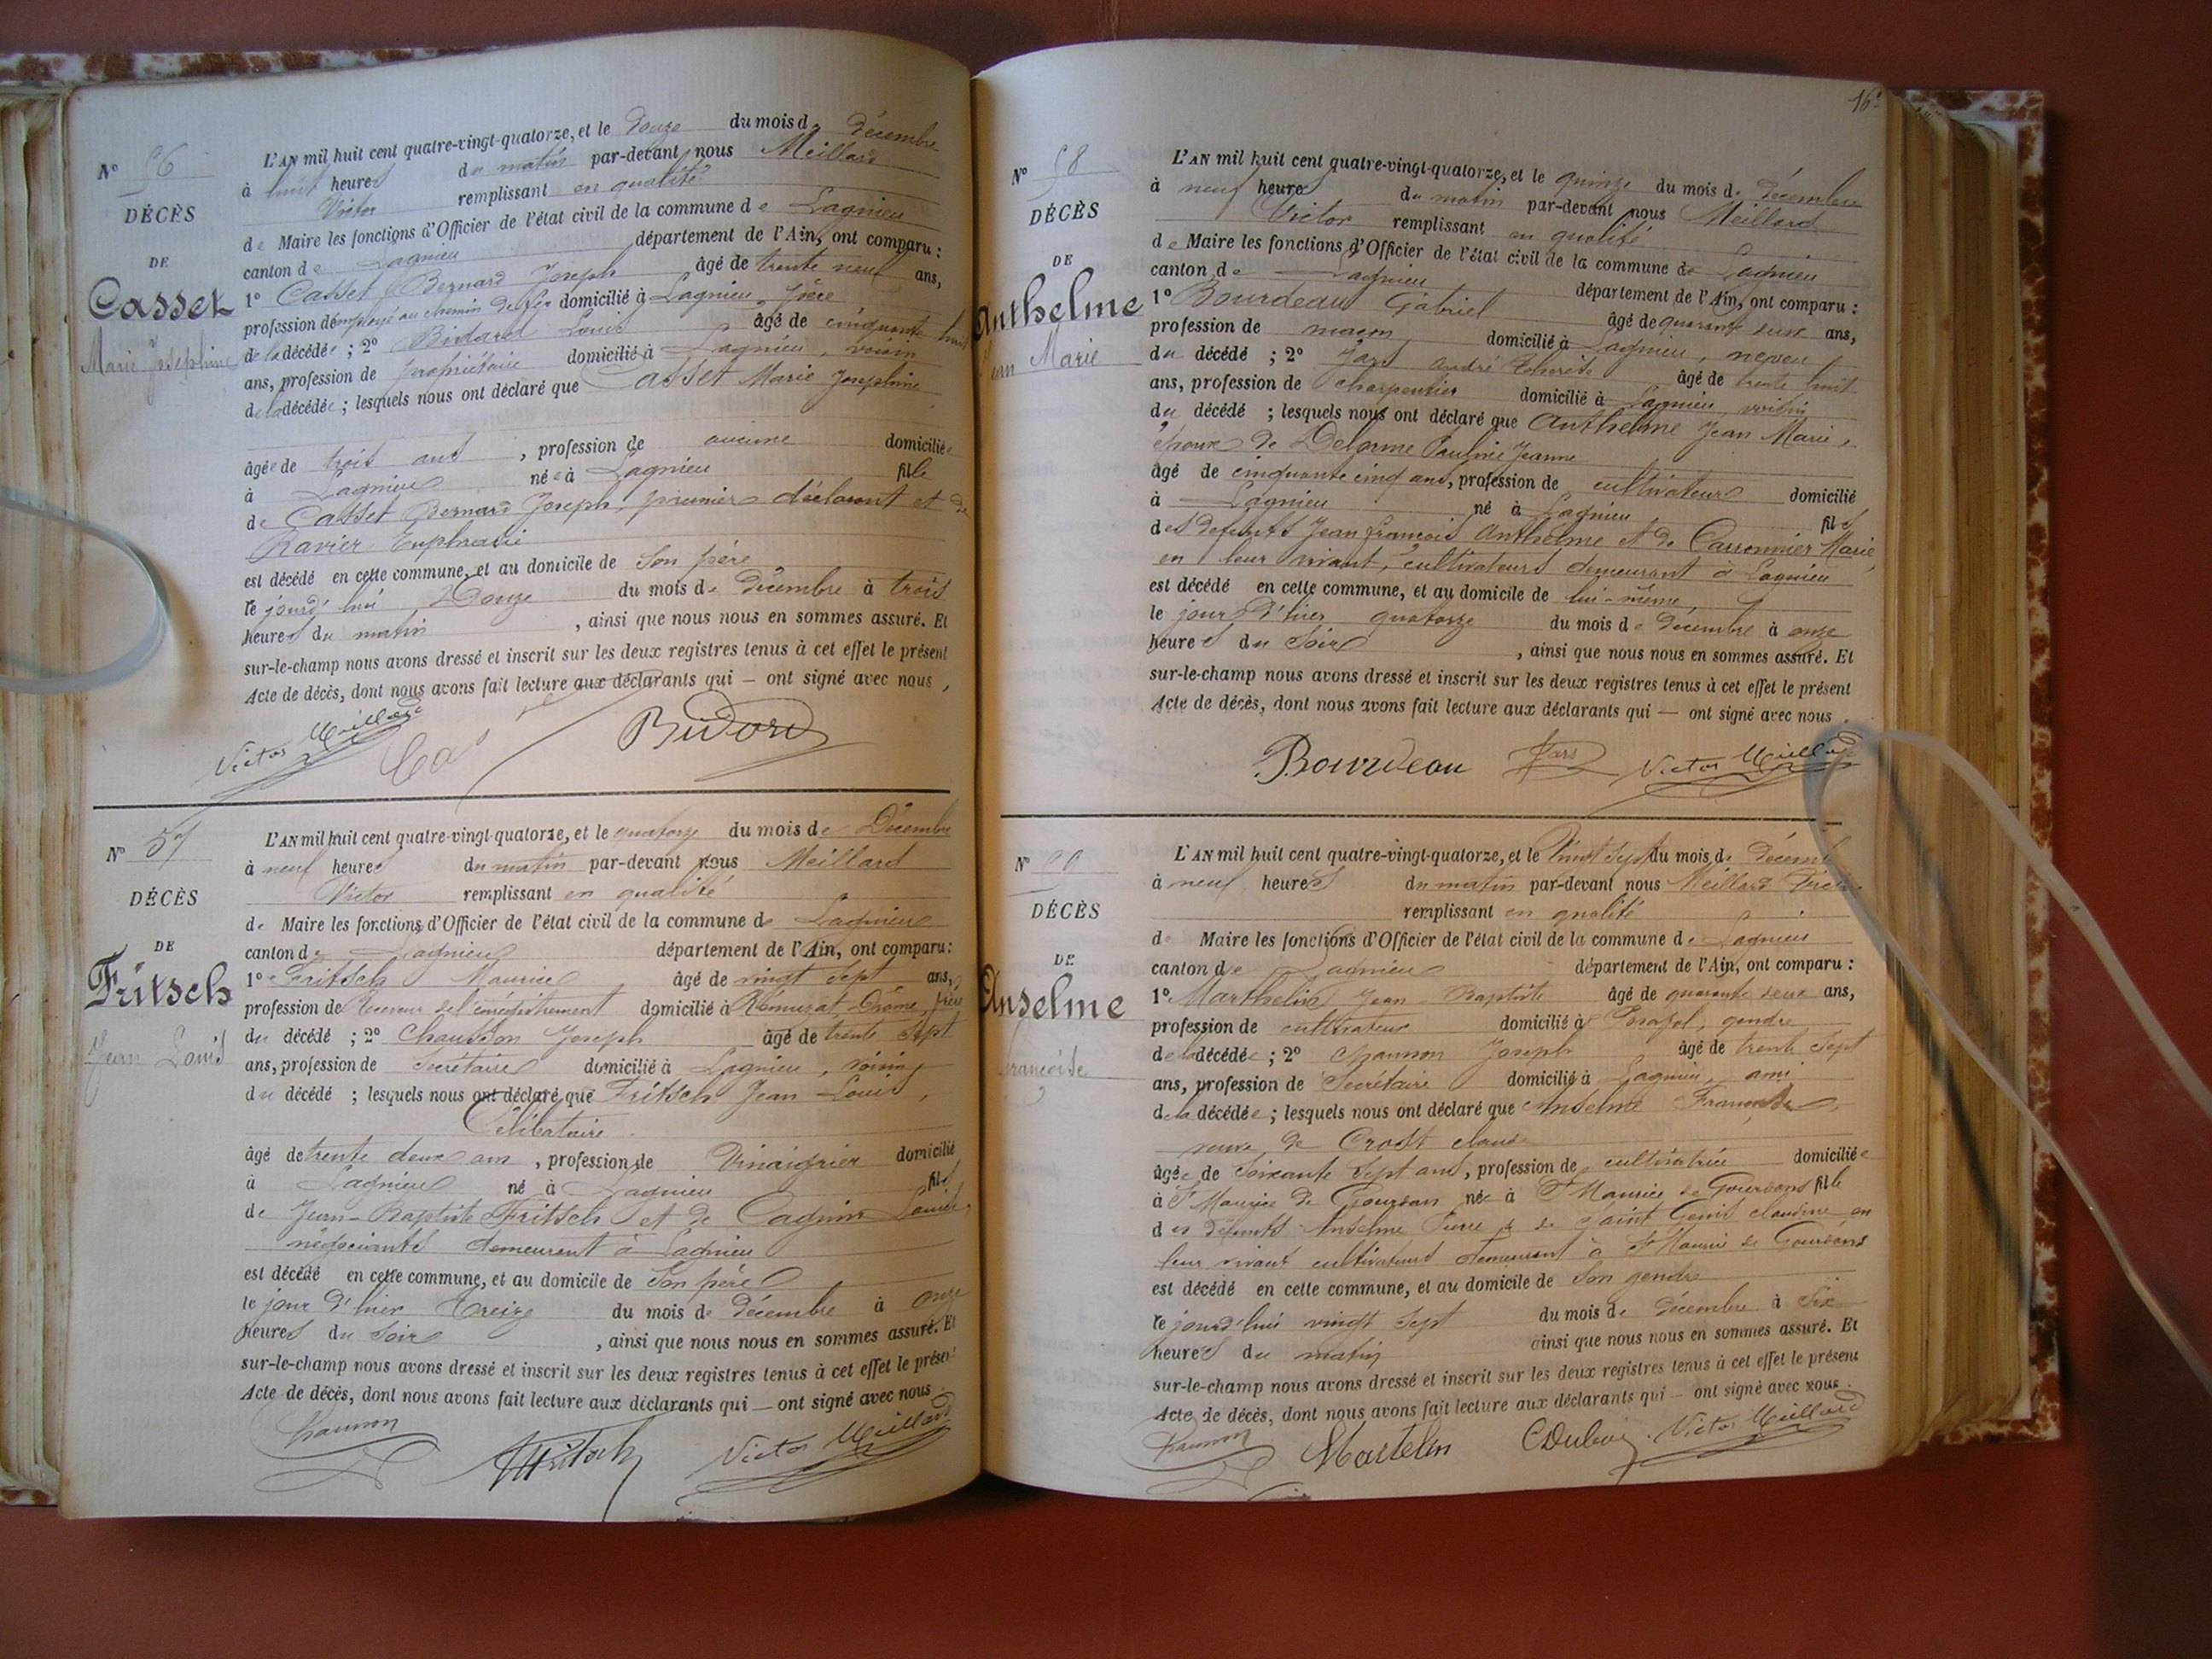 N° 56
DÉCÈS
DE
Casset
Marie Josephine
L'AN mil huit cent quatre-vingt-quatorze, et le Douze du mois de Décembre
à huit heures du matin par-devant nous Meillard
Victor remplissant en qualité
de Maire les fonctions d'Officier de l'état civil de la commune de Lagnieu
canton de Lagnieu département de l'Ain, ont comparu :
1° Casset Bernard Joseph âgé de trente neuf ans,
profession d'employé au chemin de fer domicilié à Lagnieu, Père
de la décédée ; 2° Bidard Louis âgé de cinquante huit
ans, profession de propriétaire domicilié à Lagnieu, voisin
de la décédée ; lesquels nous ont déclaré que Casset Marie Josephine
âgée de trois ans , profession de aucune domiciliée
à Lagnieu née à Lagnieu fille
de Casset Bernard Joseph, premier déclarant et de
Ravier Euphrasie
est décédé en cette commune, et au domicile de son père
le jourd'hui Douze du mois de Décembre à trois
heures du matin , ainsi que nous nous en sommes assuré. Et
sur-le-champ nous avons dressé et inscrit sur les deux registres tenus à cet effet le présent
Acte de décès, dont nous avons fait lecture aux déclarants qui — ont signé avec nous,
Victor Meillard Bidard
N° 57
DÉCÈS
DE
Fritsch
Jean Louis
L'AN mil huit cent quatre-vingt-quatorze, et le quatorze du mois de Décembre
à neuf heures du matin par-devant nous Meillard
Victor remplissant en qualité
de Maire les fonctions d'Officier de l'état civil de la commune de Lagnieu
canton de Lagnieu département de l'Ain, ont comparu :
1° Fritsch Maurice âgé de vingt sept ans,
profession de Receveur de l'enregistrement domicilié à Rémuzat, Drôme, frère
du décédé ; 2° Chaumon Joseph âgé de trente sept
ans, profession de Secrétaire domicilié à Lagnieu, voisin
du décédé ; lesquels nous ont déclaré que Fritsch Jean Louis,
Célibataire
âgé de trente deux ans , profession de Vinaigrier domicilié
à Lagnieu né à Lagnieu fils
de Jean-Baptiste Fritsch et de Cagnin
négociants demeurant à Lagnieu
est décédé en cette commune, et au domicile de Son père
le jour d'hier treize du mois de décembre à onze
heures du Soir , ainsi que nous nous en sommes assuré. Et
sur-le-champ nous avons dressé et inscrit sur les deux registres tenus à cet effet le présent
Acte de décès, dont nous avons fait lecture aux déclarants qui — ont signé avec nous.
Chaumon Fritsch Victor Meillard
N° 58
DÉCÈS
DE
Anthelme
Jean Marie
L'AN mil huit cent quatre-vingt-quatorze, et le quinze du mois de Décembre
à neuf heures du matin par-devant nous Meillard
Victor remplissant en qualité
de Maire les fonctions d'Officier de l'état civil de la commune de Lagnieu
canton de Lagnieu département de l'Ain, ont comparu :
1° Bourdeau Gabriel âgé de quarante deux ans,
profession de maçon domicilié à Lagnieu, neveu
du décédé ; 2° Jars André âgé de trente huit
ans, profession de charpentier domicilié à Lagnieu voisin
du décédé ; lesquels nous ont déclaré que Anthelme Jean Marie,
époux de Delorme Pauline Jeanne
âgé de cinquante cinq ans, profession de cultivateur domicilié
à Lagnieu né à Lagnieu fils
des défunts Jean françois Anthelme et de Carronnier Marie,
en leur vivant, cultivateurs demeurant à Lagnieu
est décédé en cette commune, et au domicile de lui-même,
le jour d'hier quatorze du mois de décembre à onze
heures du Soir , ainsi que nous nous en sommes assuré. Et
sur-le-champ nous avons dressé et inscrit sur les deux registres tenus à cet effet le présent
Acte de décès, dont nous avons fait lecture aux déclarants qui — ont signé avec nous.
Bourdeau Jars Victor Meillard
N°
DÉCÈS
DE
Anselme
Françoise
L'AN mil huit cent quatre-vingt-quatorze, et le Vingt Sept du mois de décembre
à neuf heures du matin par-devant nous Meillard Victor
remplissant en qualité
de Maire les fonctions d'Officier de l'état civil de la commune de Lagnieu
canton de Lagnieu département de l'Ain, ont comparu :
1° Marthelin Jean Baptiste âgé de quarante deux ans,
profession de cultivateur domicilié à gendre
de la décédée ; 2° Chaumon Joseph âgé de trente sept
ans, profession de Secrétaire domicilié à Lagnieu, ami
de la décédée ; lesquels nous ont déclaré que Anselme Françoise,
veuve de Crost claude
âgée de soixante sept ans, profession de cultivatrice domiciliée
à St Maurice de Gourdans née à St Maurice de Gourdans fille
des défunts Anselme Pierre & de Saint Genis claudine en
leur vivant cultivateurs demeurant à St Maurice de Gourdans
est décédé en cette commune, et au domicile de son gendre
le jourd'hui vingt sept du mois de décembre à Six
heures du matin ainsi que nous nous en sommes assuré. Et
sur-le-champ nous avons dressé et inscrit sur les deux registres tenus à cet effet le présent
Acte de décès, dont nous avons fait lecture aux déclarants qui — ont signé avec nous.
Chaumon Martelin CDubois Victor Meillard